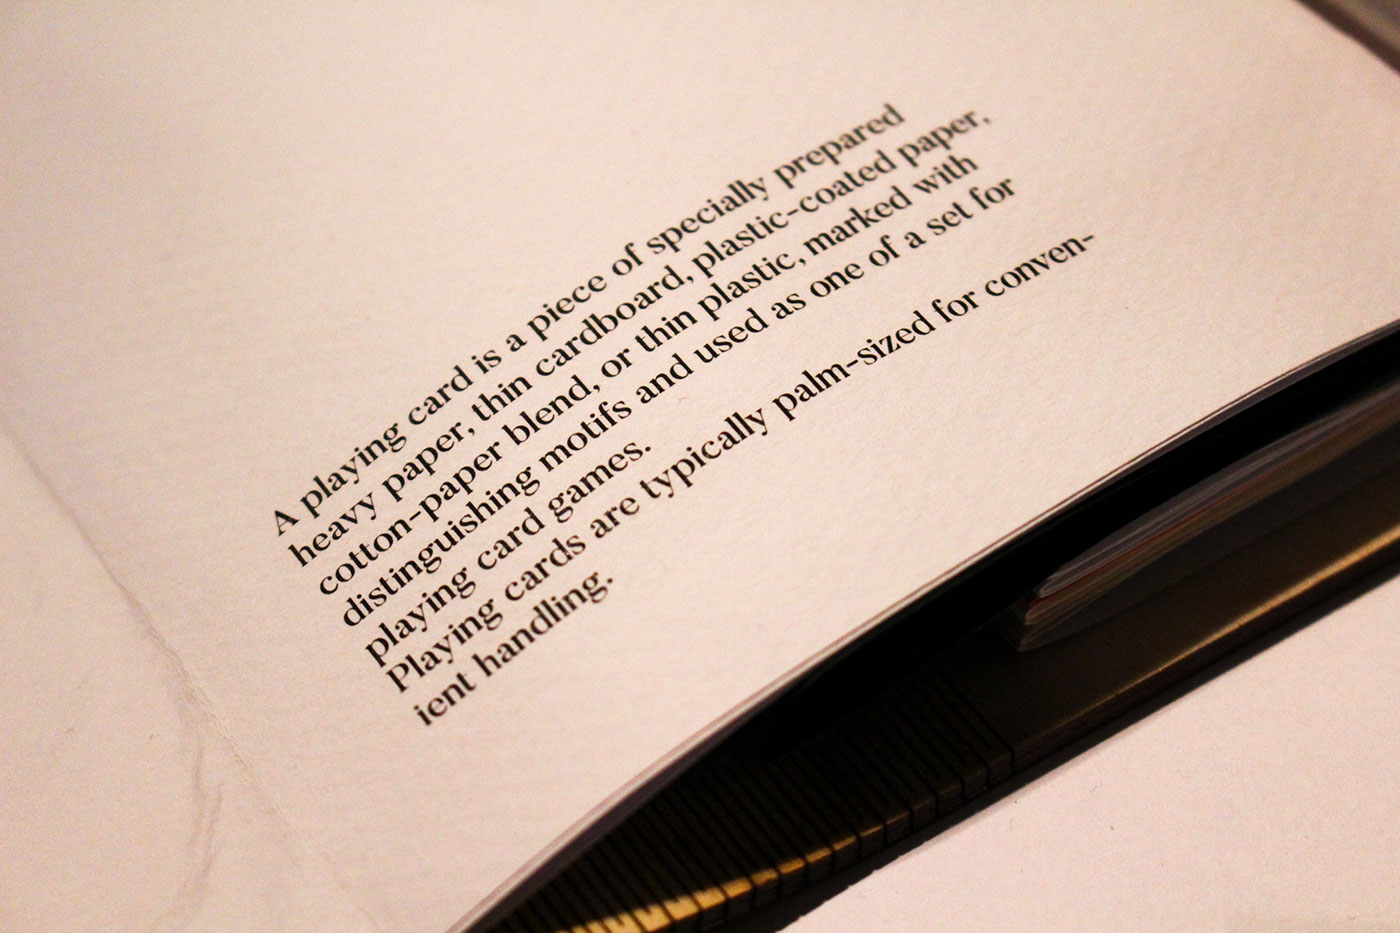 A playing card is a piece of specially prepared
heavy paper, thin cardboard, plastic-coated paper,
cotton-paper blend, or thin plastic, marked with
distinguishing motifs and used as one of a set for
playing card games.
Playing cards are typically palm-sized for conven-
ient handling.